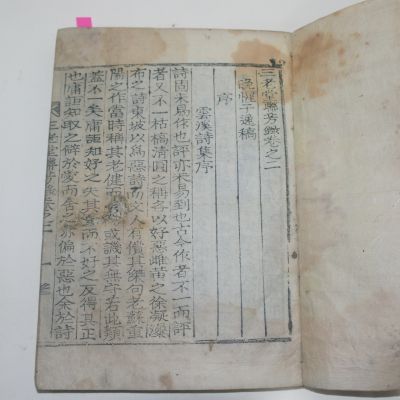 三老堂聯芳錄卷之二
晩惺子遺稿
序
雲溪詩集序
詩固未易作也評亦未易到也古今作者不一而評
者又不一枯槁淸圓之稱各以好惡雌黃之徐凝瀑
布之詩東坡以爲惡詩而
人有償其樂句老蘇
陽之作當時稱其老健而
或譏其無
若此類
蓋不
矣庸詎知好之失其
而不好之反得其正
也庸詎知取之僻於愛而舍之亦偏於惡也余於詩